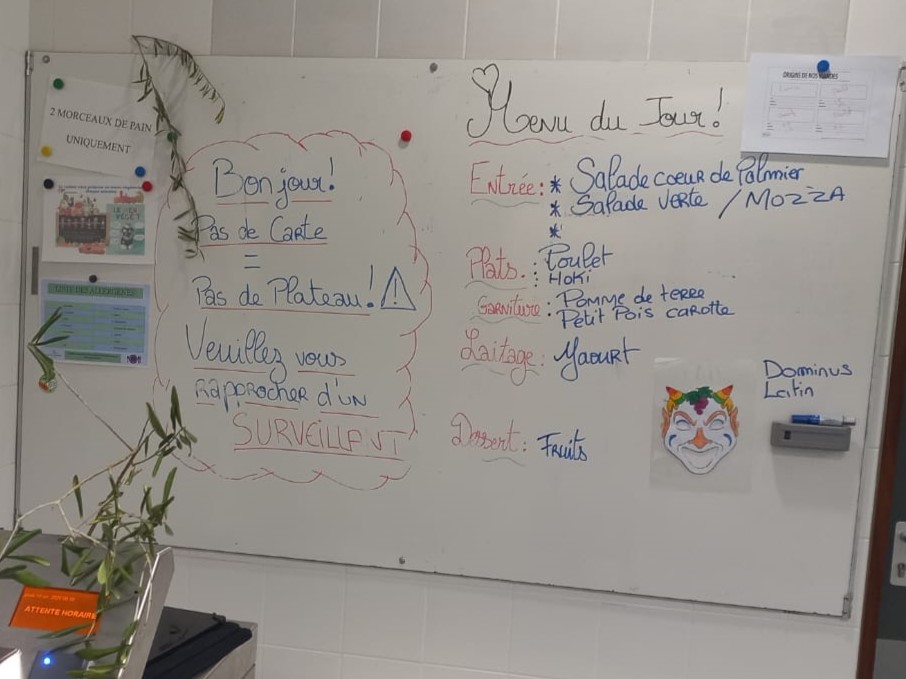 2 MORCEAUX DE PAIN
UNIQUEMENT
LISTE DES ALLERGENES
Bonjour!
Pas de Carte
=
Pas de Plateau!
Veuillez vous
RAPPROCHER d'UN
SURVEILLANT
Menu du Jour!
Entrée: * Salade coeur de Palmier
* Salade verte / MOZZA
*
Plats: Poulet
: Hoki
Garniture: Pomme de terre
Petit Pois carotte
Laitage: Yaourt
Dessert: Fruits
Dominus
Latin
ORIGINE DE NOS
ATTENTE HORAIRE